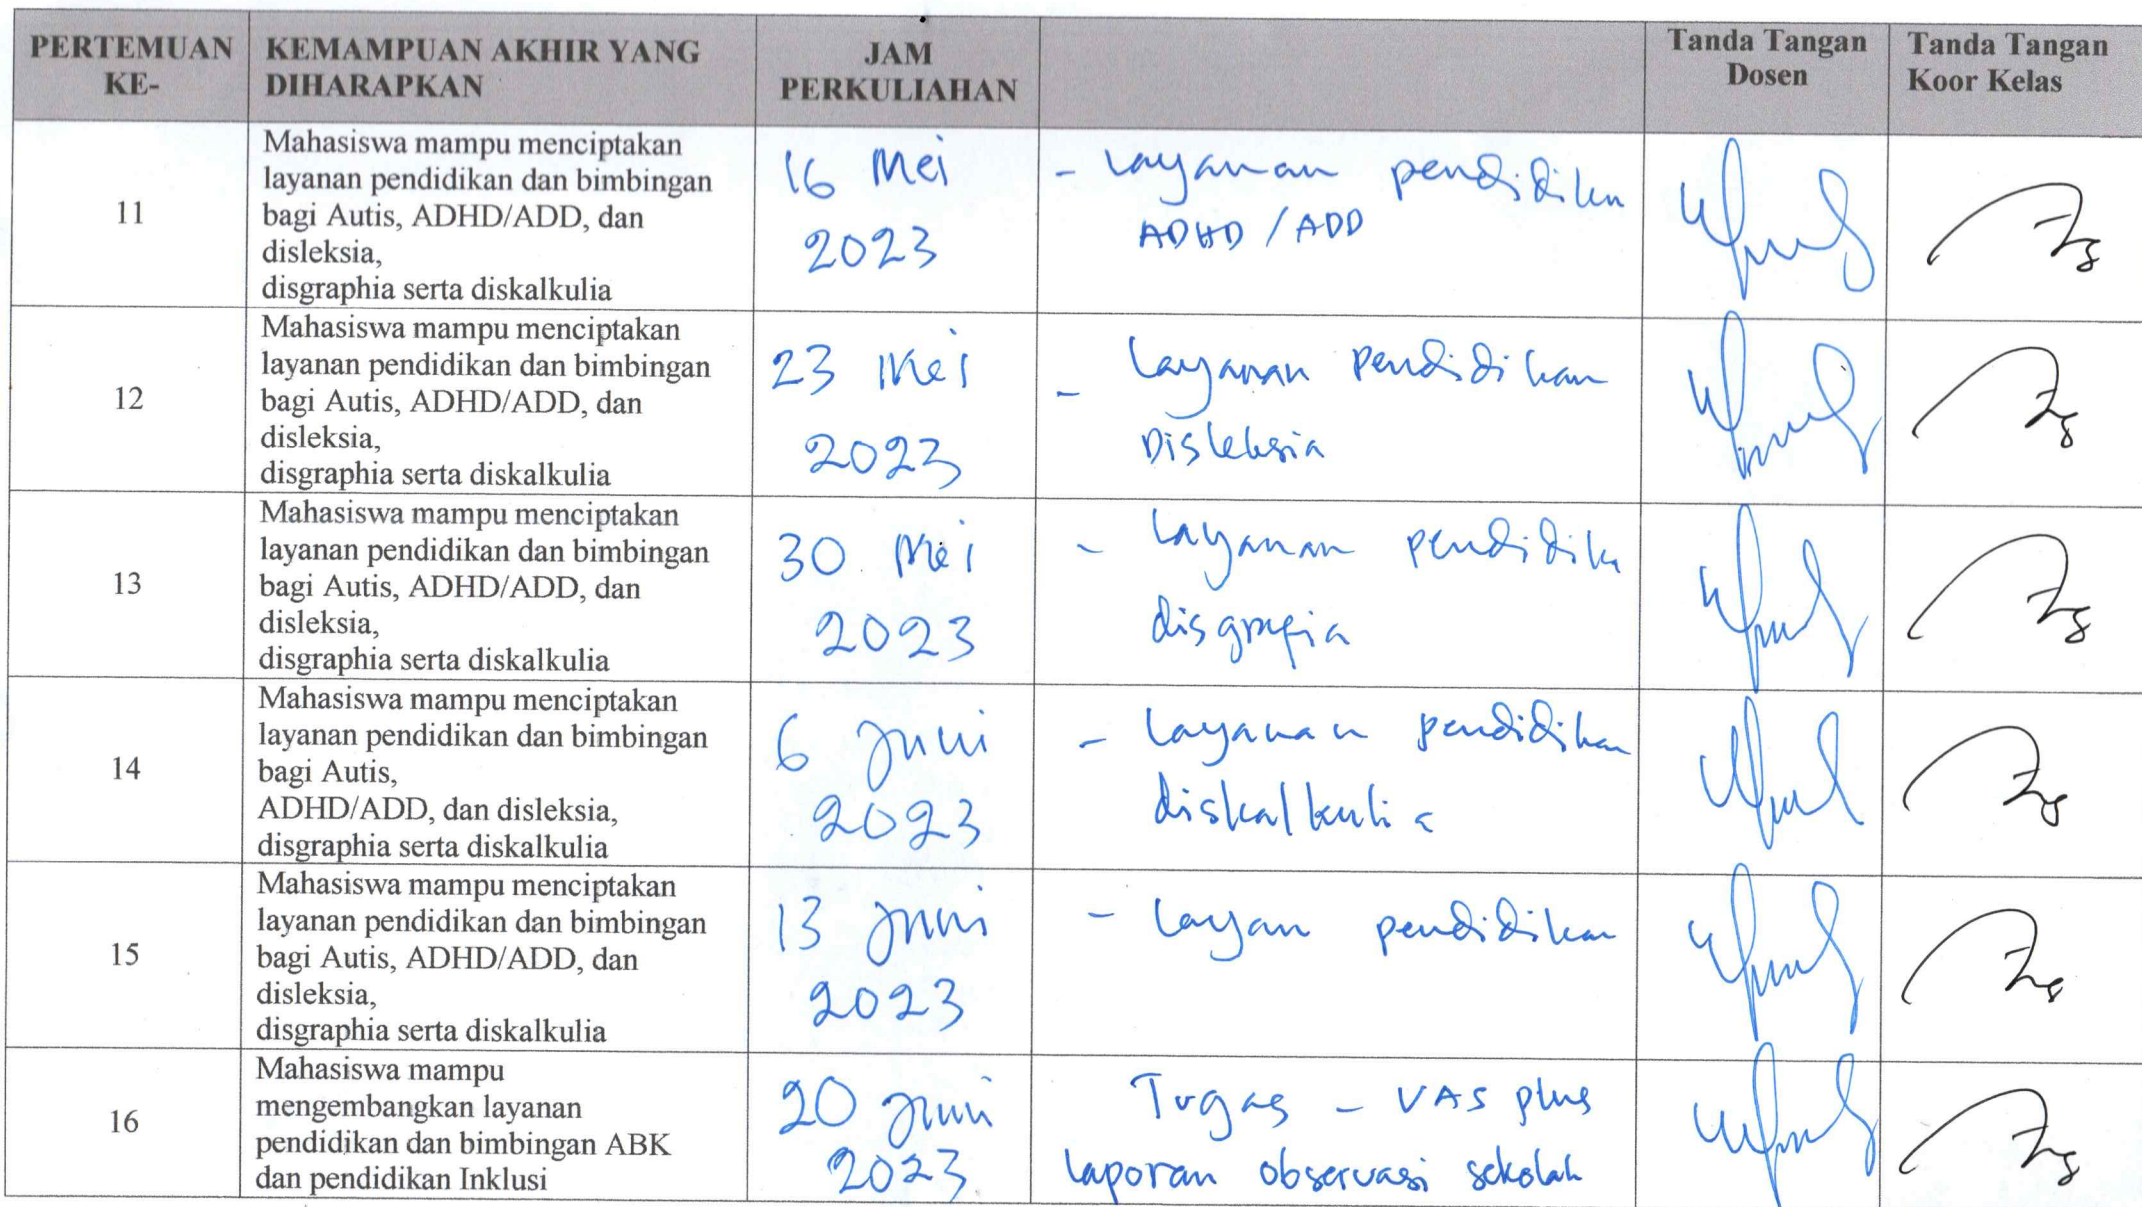 PERTEMUAN KE-
KEMAMPUAN AKHIR YANG DIHARAPKAN
JAM PERKULIAHAN
Tanda Tangan Dosen
Tanda Tangan Koor Kelas
11
Mahasiswa mampu menciptakan
layanan pendidikan dan bimbingan
bagi Autis, ADHD/ADD, dan
disleksia,
disgraphia serta diskalkulia
16 Mei
2023
- Layanan pendidikn
ADHD / ADD
12
Mahasiswa mampu menciptakan
layanan pendidikan dan bimbingan
bagi Autis, ADHD/ADD, dan
disleksia,
disgraphia serta diskalkulia
23 Mei
2023
- Layanan pendidikan
Disleksia
13
Mahasiswa mampu menciptakan
layanan pendidikan dan bimbingan
bagi Autis, ADHD/ADD, dan
disleksia,
disgraphia serta diskalkulia
30 Mei
2023
- Layanan pendidika
disgrafia
14
Mahasiswa mampu menciptakan
layanan pendidikan dan bimbingan
bagi Autis,
ADHD/ADD, dan disleksia,
disgraphia serta diskalkulia
6 Juni
2023
- Layanan pendidikan
diskalkulia
15
Mahasiswa mampu menciptakan
layanan pendidikan dan bimbingan
bagi Autis, ADHD/ADD, dan
disleksia,
disgraphia serta diskalkulia
13 Juni
2023
- Layan pendidikan
16
Mahasiswa mampu
mengembangkan layanan
pendidikan dan bimbingan ABK
dan pendidikan Inklusi
20 Juni
2023
Tugas - UAS plus
laporan observasi sekolah